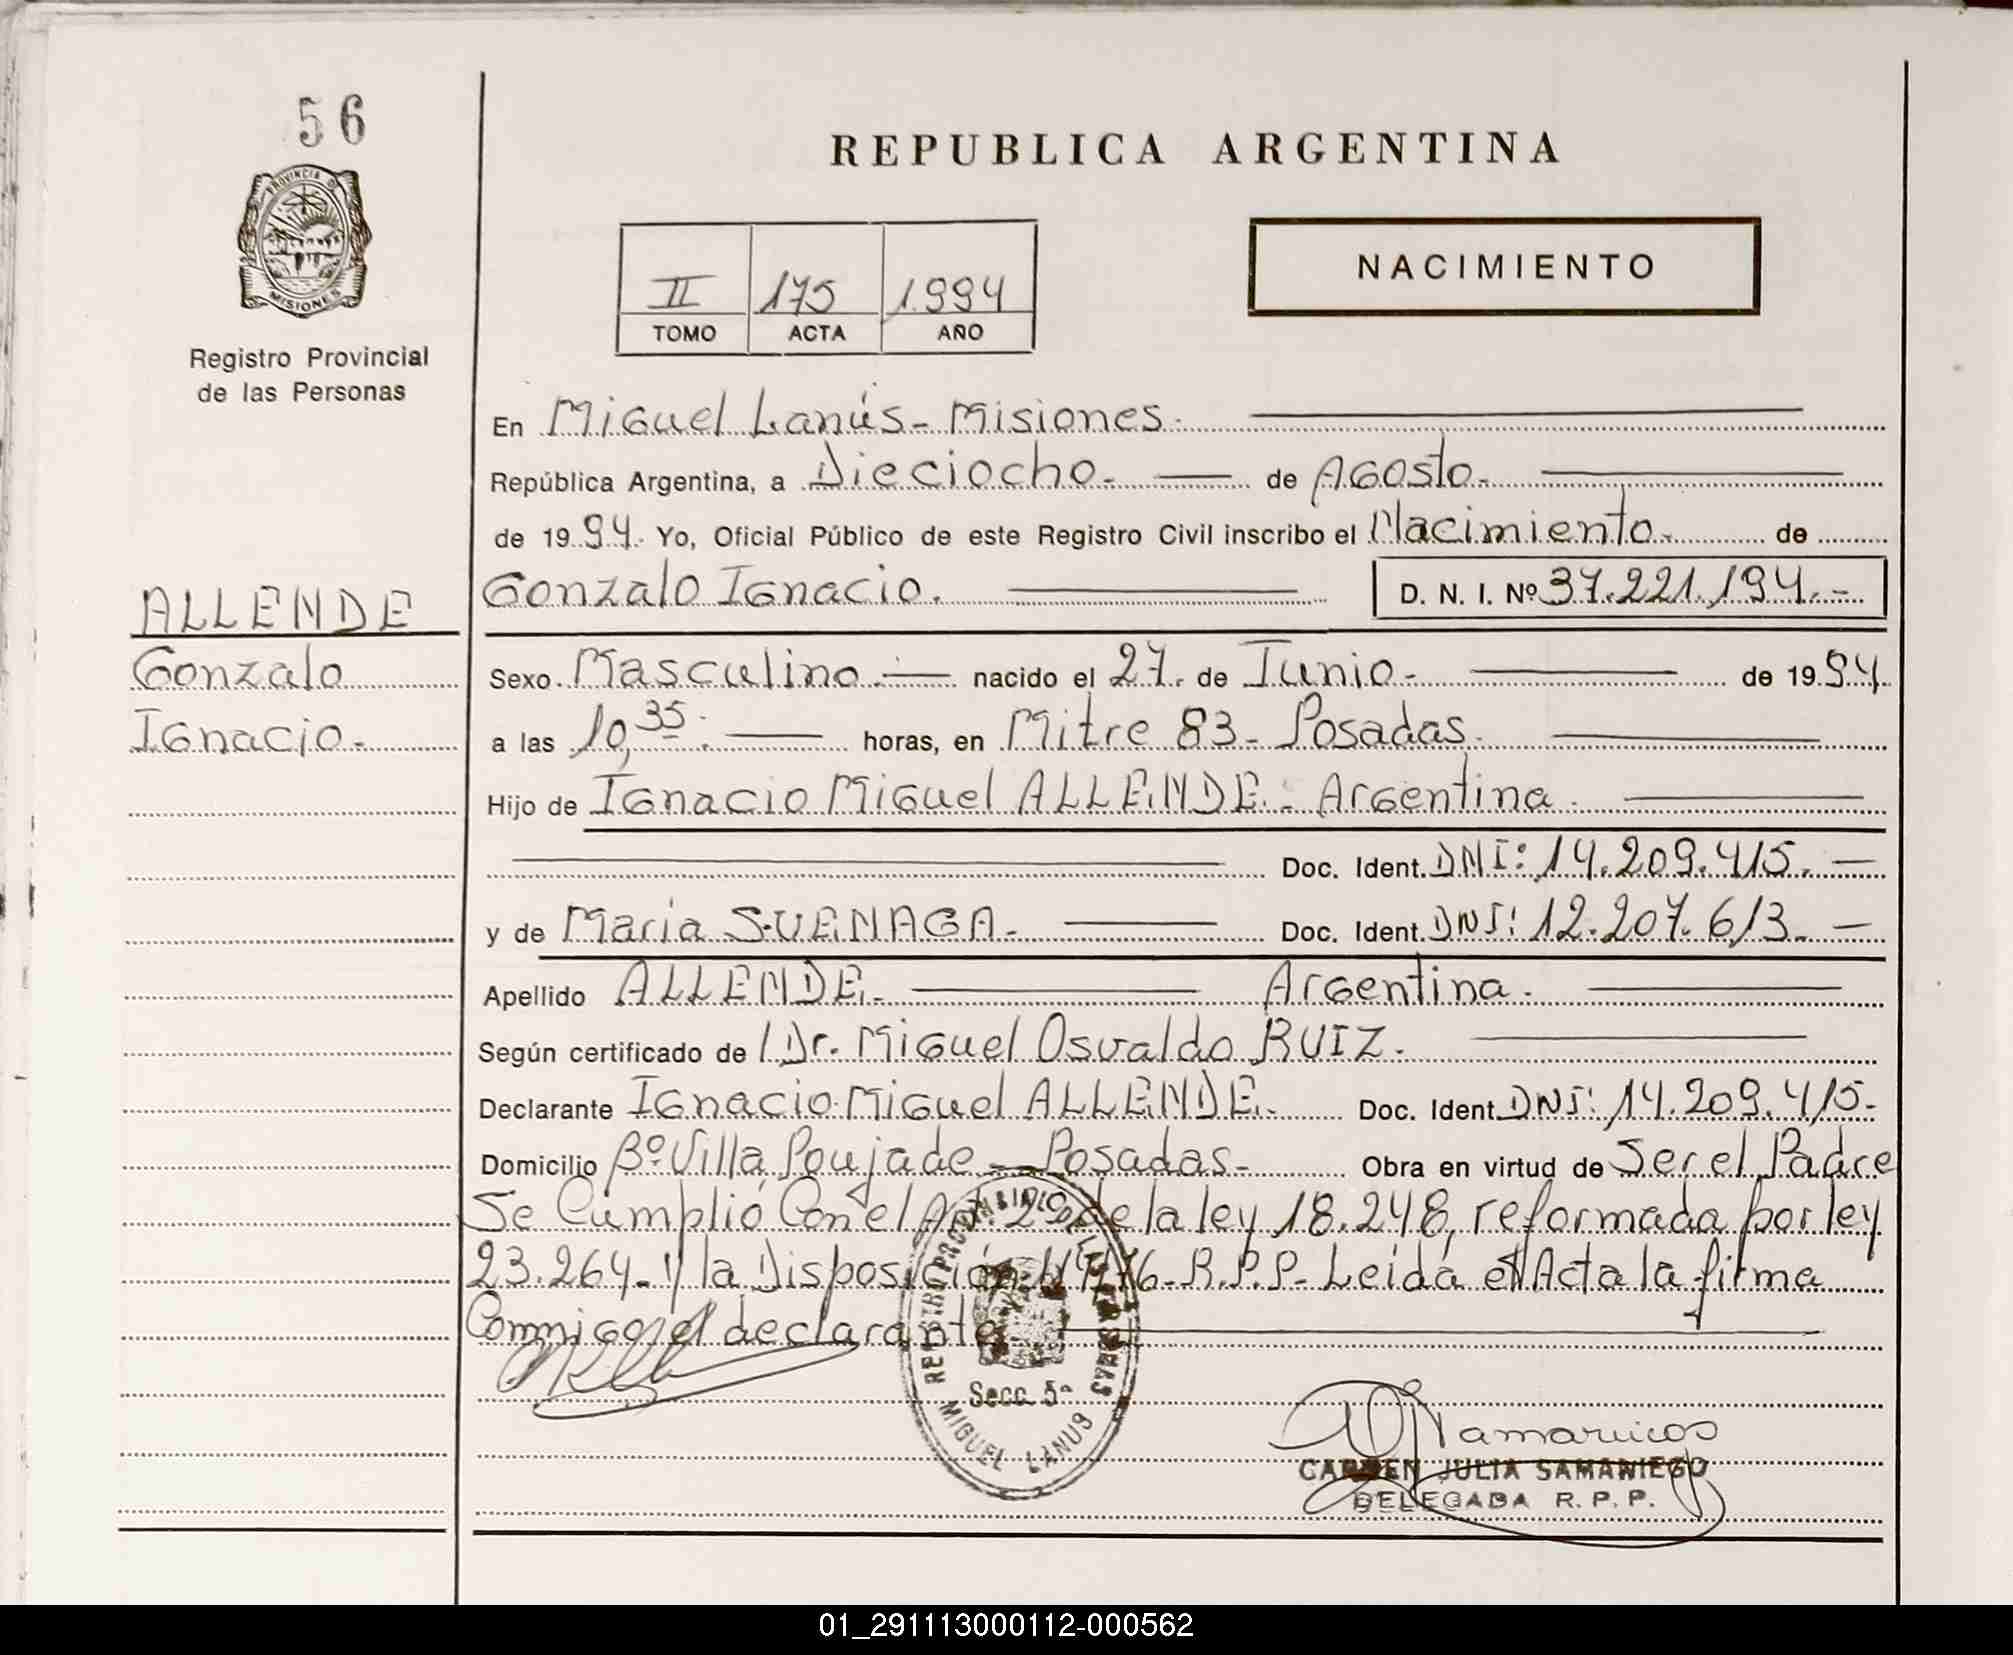 56
PROVINCIA DE
MISIONES
Registro Provincial
de las Personas
REPUBLICA ARGENTINA
II 175 1.994
TOMO ACTA AÑO
NACIMIENTO
En Miguel Lanús - Misiones.
República Argentina, a Dieciocho. de Agosto.
de 1994. Yo, Oficial Público de este Registro Civil inscribo el Nacimiento. de
Gonzalo Ignacio. D. N. I. Nº 37.221.194.-
ALLENDE
Gonzalo
Ignacio.
Sexo Masculino.- nacido el 27. de Junio. de 1994
a las 10,35. horas, en Mitre 83 - Posadas.
Hijo de Ignacio Miguel ALLENDE. - Argentina.
Doc. Ident. DNI: 14.209.415.-
y de Maria SUENAGA. Doc. Ident. DNI: 12.207.613.-
Apellido ALLENDE. Argentina.
Según certificado de Dr. Miguel Osvaldo RUIZ.
Declarante Ignacio Miguel ALLENDE. Doc. Ident. DNI: 14.209.415.
Domicilio Bº Villa Poujade - Posadas - Obra en virtud de Ser el Padre
Se Cumplió Con el Art. 2º de la ley 18.248, reformada por ley
23.264 - y la Disposición R.P.P. Leida el Acta la firma
Conmigo el declarante.
REGISTRO PROVINCIAL DE LAS PERSONAS
Secc. 5ª
MIGUEL LANUS
CARMEN JULIA SAMANIEGO
DELEGADA R. P. P.
01_291113000112-000562